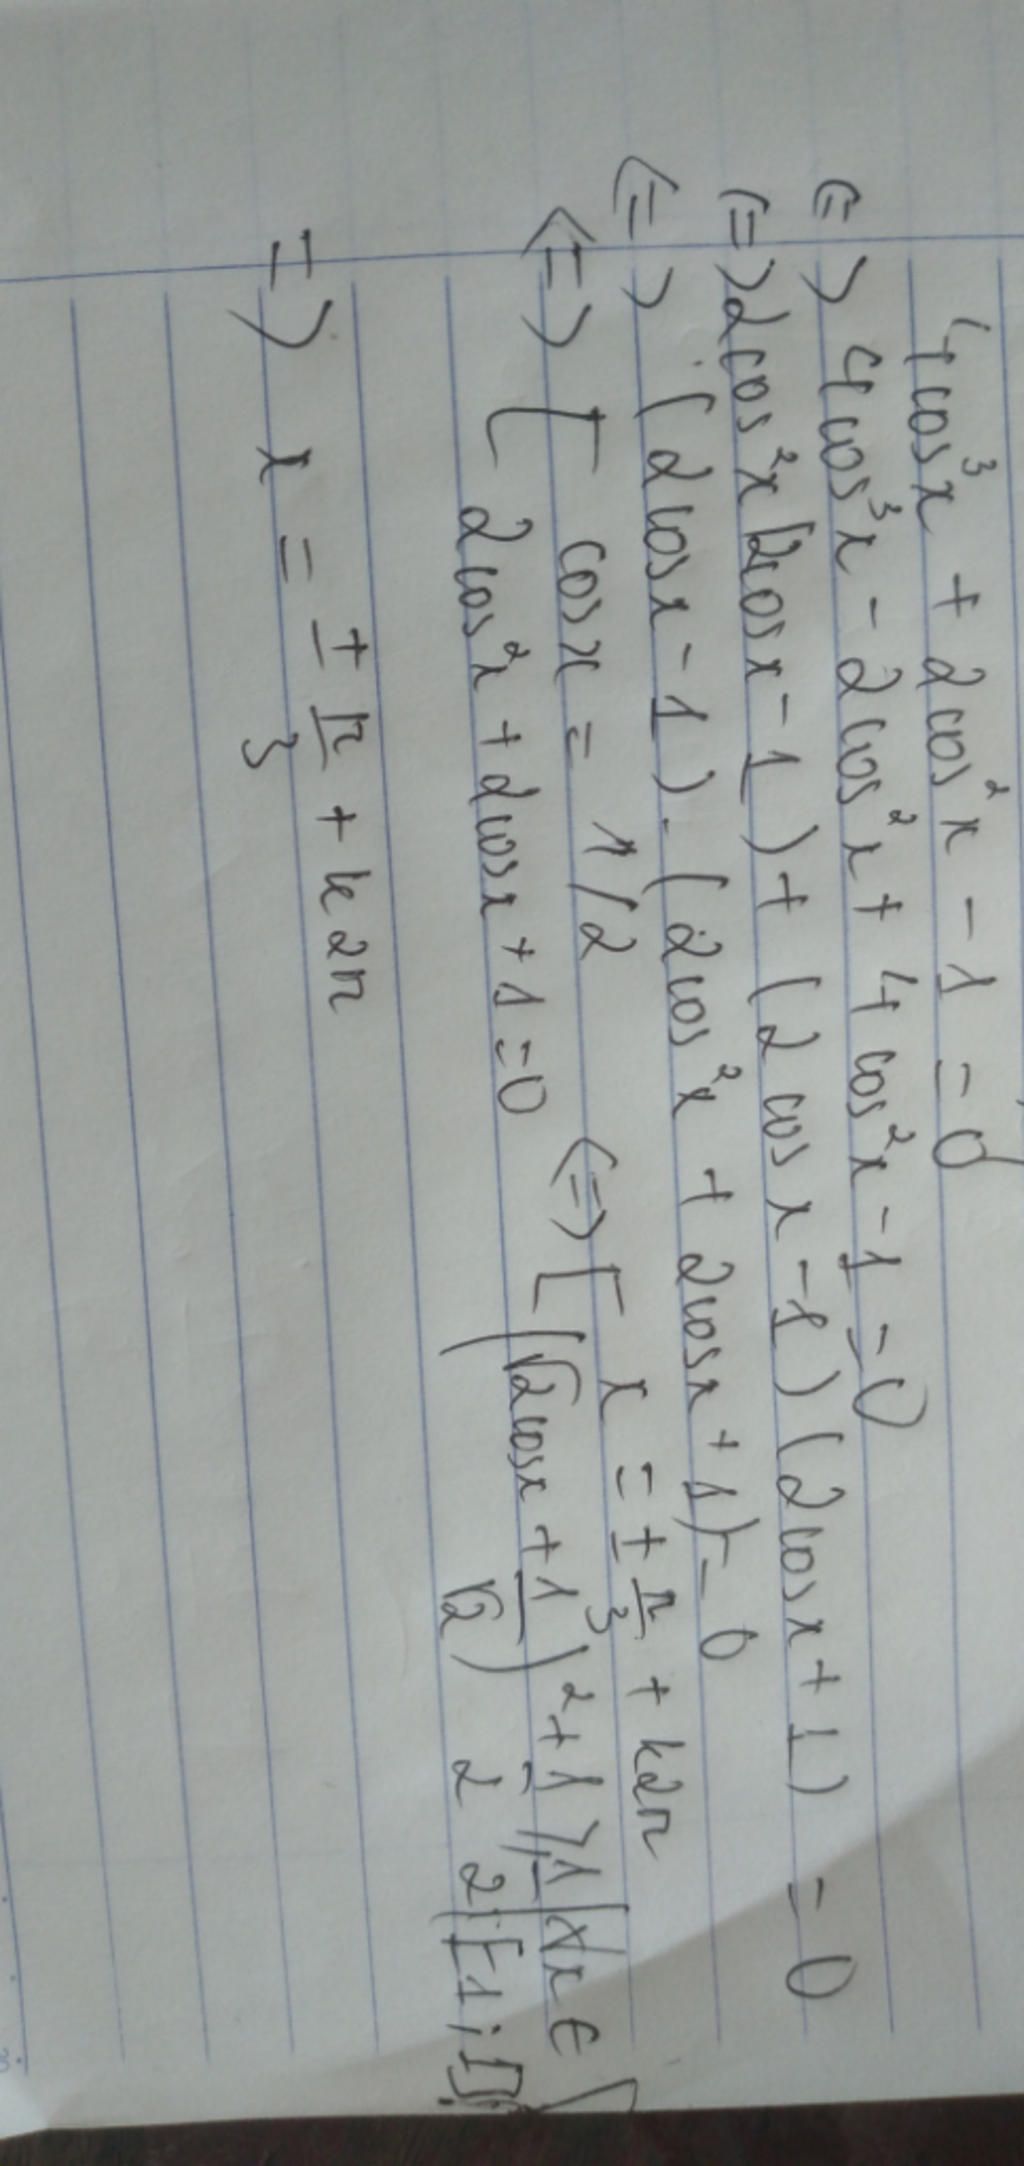 4cos³x + 2cos²x - 1 = 0
<=> 4cos³x - 2cos²x + 4cos²x - 1 = 0
<=> 2cos²x(2cosx - 1) + (2cosx - 1)(2cosx + 1) = 0
<=> (2cosx - 1).(2cos²x + 2cosx + 1) = 0
<=> [ cosx = 1/2 <=> [ x = ± π/3 + k2π
2cos²x + 2cosx + 1 = 0 (√2cosx + 1/√2)² + 1/2 ≥ 1/2 ∀x ∈ [-1;1]
=> x = ± π/3 + k2π